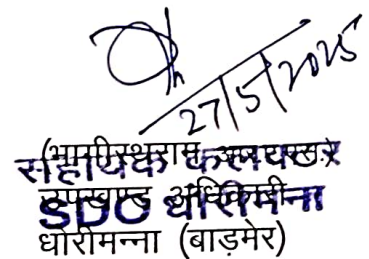 27/5/2025
(भागीरथराम
सहायक कलक्टर
उपखण्ड अधिकारी
SDO धोरीमन्ना
धोरीमन्ना (बाड़मेर)